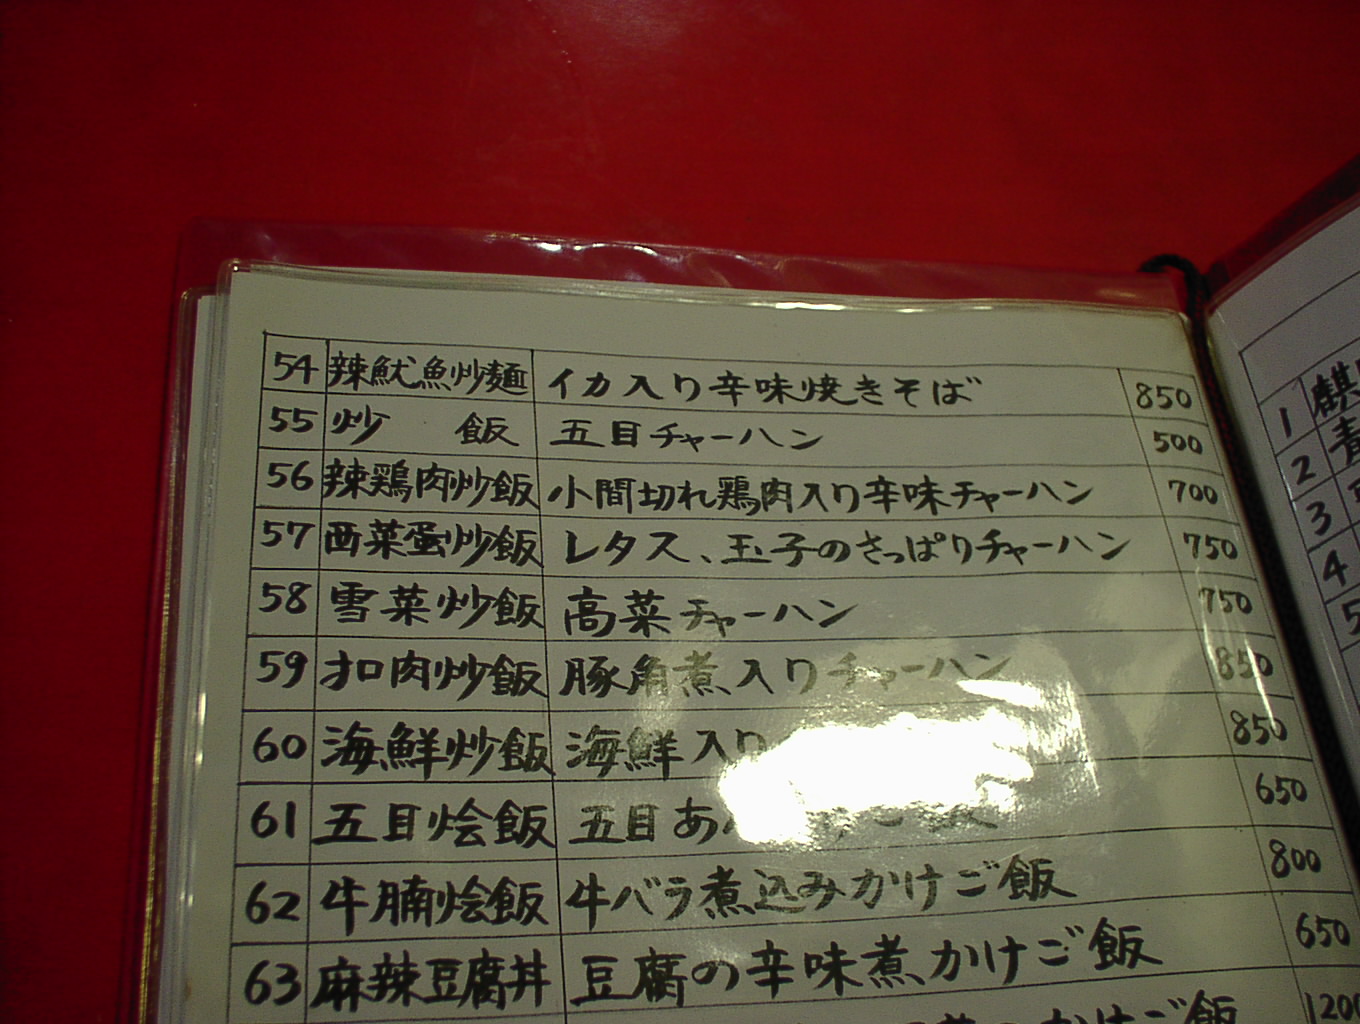 54 辣魷魚炒麺 イカ入り辛味焼きそば 850
55 炒 飯 五目チャーハン 500
56 辣鶏肉炒飯 小間切れ鶏肉入り辛味チャーハン 700
57 西菜蛋炒飯 レタス、玉子のさっぱりチャーハン 750
58 雪菜炒飯 高菜チャーハン 750
59 扣肉炒飯 豚角煮入りチャーハン 850
60 海鮮炒飯 海鮮入り 850
61 五目烩飯 五目あ 650
62 牛腩烩飯 牛バラ煮込みかけご飯 800
63 麻辣豆腐丼 豆腐の辛味煮かけご飯 650
かけご飯 1200
1 麒
2 青
3
4
5